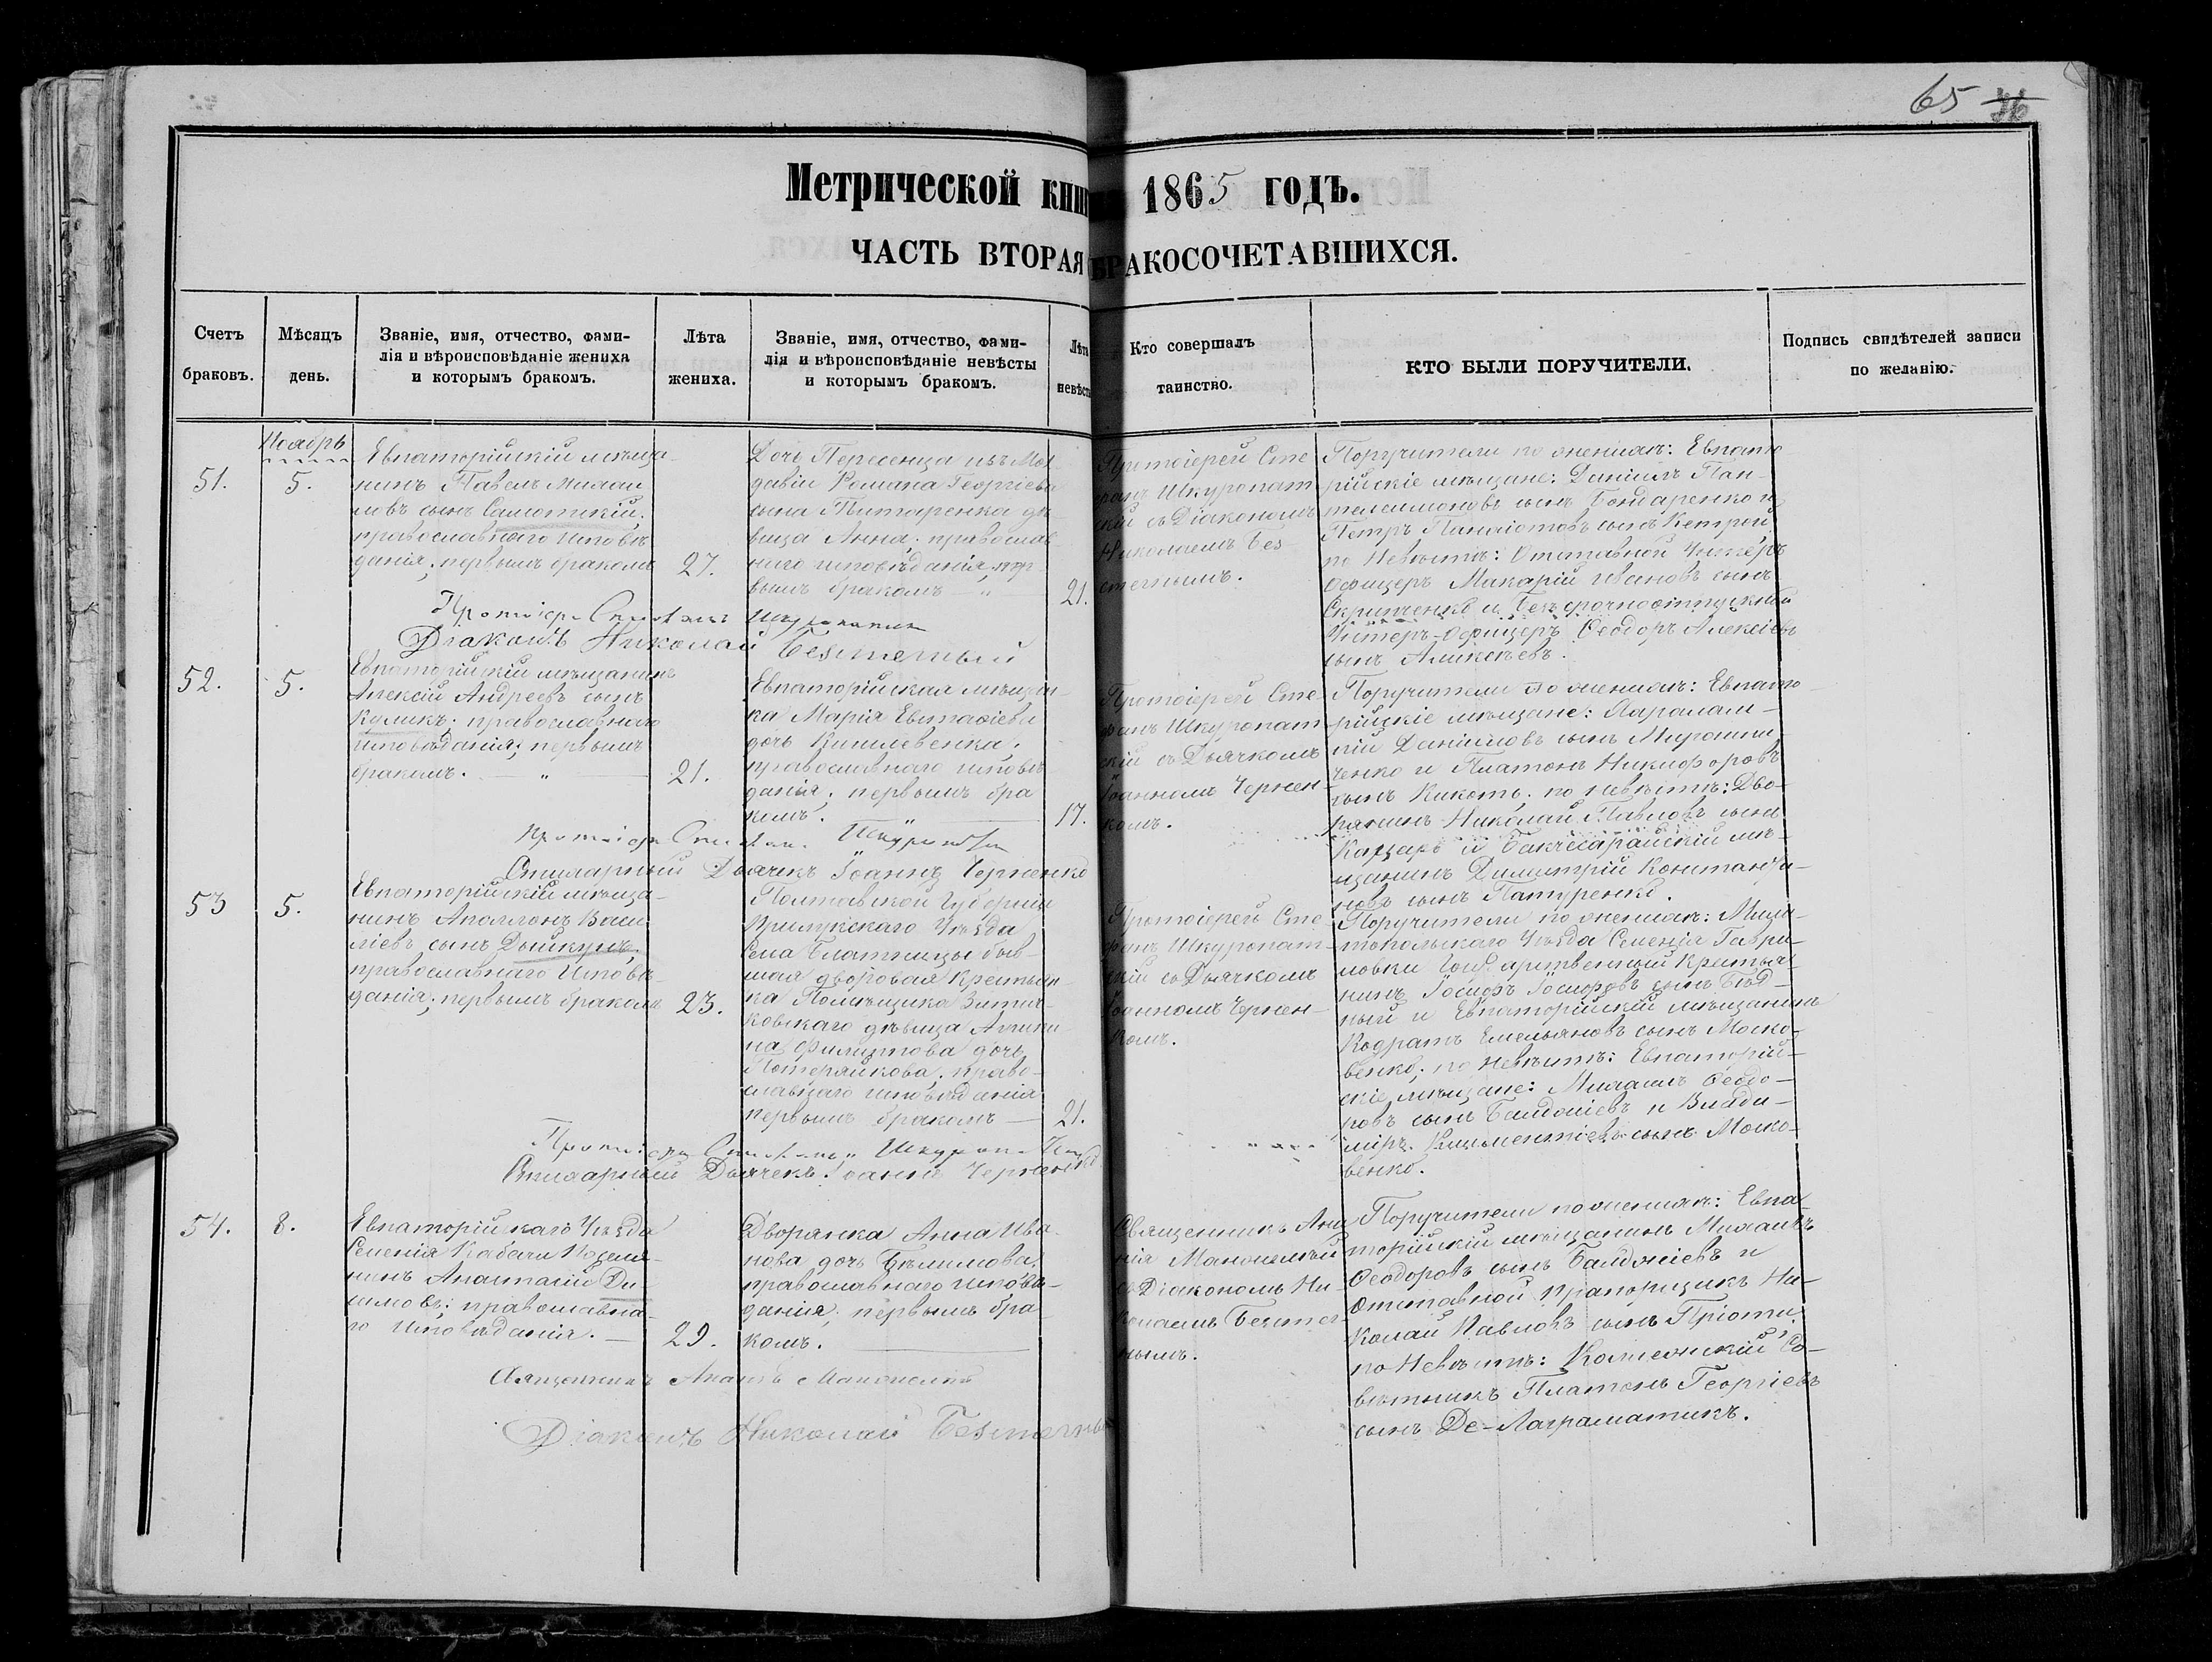 65 76
Метрической книги 1865 годъ.
ЧАСТЬ ВТОРАЯ БРАКОСОЧЕТАВШИХСЯ.
Счетъ
браковъ.
Мѣсяцъ
день.
Званіе, имя, отчество, фами-
лія и вѣроисповѣданіе жениха
и которымъ бракомъ.
Лѣта
жениха.
Званіе, имя, отчество, фами-
лія и вѣроисповѣданіе невѣсты
и которымъ бракомъ.
Лѣта
невѣсты
Кто совершалъ
таинство.
КТО БЫЛИ ПОРУЧИТЕЛИ.
Подпись свидѣтелей записи
по желанію.
Ноябрь
51.
5.
Евпаторійскій мѣща-
нинъ Павелъ Михаи
ловъ сынъ
православнаго исповѣ
данія, первымъ бракомъ
27.
Дочь Переселенца изъ Мол
давіи Романа Георгіева
сына Питаренка дѣ-
вица Анна, православ-
наго исповѣданія, пер-
вымъ бракомъ — „
21.
Протоіерей Сте
фанъ Шкуропат
скій съ Діакономъ
Николаемъ Без-
смертнымъ.
Поручители по женихѣ: Евпато
рійскіе мѣщане: Даніилъ Пан-
телеимоновъ сынъ Бондаренко и
Петръ Панаіотовъ сынъ
по Невѣстѣ: Отставной Унтеръ
Офицеръ Макарій Ивановъ сынъ
Скрипченко и Безсрочноотпускной
Унтеръ-Офицеръ Ѳеодоръ Алексѣевъ
сынъ Аликсѣевъ.
Протоіерей Стефанъ Шкуропатскій
Діаконъ Николай Безсмертный
52.
5.
Евпаторійскій мѣщанинъ
Алексій Андреевъ сынъ
Куликъ, православнаго
исповѣданія, первымъ
бракомъ. — „
21.
Евпаторійская мѣщан-
ка Марія Евстафіева
дочь
православнаго исповѣ-
данія, первымъ бра
комъ.
17.
Протоіерей Сте
фанъ Шкуропат
скій съ Дьячкомъ
Іоанномъ Чернен-
комъ.
Поручители по женихѣ: Евпато-
рійскіе мѣщане: Харалам-
пій Даніиловъ сынъ Мирошни
ченко и Платонъ Никифоровъ
сынъ Кикоть, по невѣстѣ: Дво-
рянинъ Николай Павловъ сынъ
и Бакчисарайскій мѣ-
щанинъ Димитрій Константи-
новъ сынъ
Протоіерей Стефанъ Шкуропатскій
Дьячекъ Іоаннъ Черненко
53
5.
Евпаторійскій мѣща-
нинъ Аполлонъ Васи
ліевъ сынъ
православнаго исповѣ-
данія, первымъ бракомъ
23.
Полтавской Губерніи
Прилукскаго Уѣзда
Села быв-
шая дворовая Крестьян-
ка Помѣщика
дѣвица
на Филиппова дочь
право-
славнаго исповѣданія
первымъ бракомъ —
21.
Протоіерей Сте
фанъ Шкуропат-
скій съ Дьячкомъ
Іоанномъ Чернен-
комъ.
Поручители по женихѣ: Мели-
топольскаго Уѣзда Селенія Гаври-
ловки Государственный Крестья-
нинъ Іосифъ Іосифовъ сынъ Бѣд-
ный и Евпаторійскій мѣщанинъ
Кодратъ Емельяновъ сынъ Моско-
венко, по невѣстѣ: Евпаторій-
скіе мѣщане: Михаилъ Ѳеодо-
ровъ сынъ Балджіевъ и Влади-
міръ сынъ Моско-
венко.
Протоіерей Стефанъ Шкуропатскій
Дьячекъ Іоаннъ Черненко
54.
8.
Евпаторійскаго Уѣзда
Селенія Поселя-
нинъ Анастасій
православна-
го исповѣданія. —
29.
Дворянка Анна Ива
нова дочь
православнаго исповѣ-
данія, первымъ бра
комъ.
Священникъ Ана
нія
съ Діакономъ Ни-
колаемъ Безсмер-
тнымъ.
Поручители по женихѣ: Евпа-
торійскій мѣщанинъ Михаилъ
Ѳеодоровъ сынъ Балджіевъ и
Отставной Прапорщикъ Ни-
колай Павловъ сынъ
по Невѣстѣ: Коллежскій Со-
вѣтникъ Платонъ Георгіевъ
сынъ Де-Лаграматикъ.
Священникъ
Діаконъ Николай Безсмертный